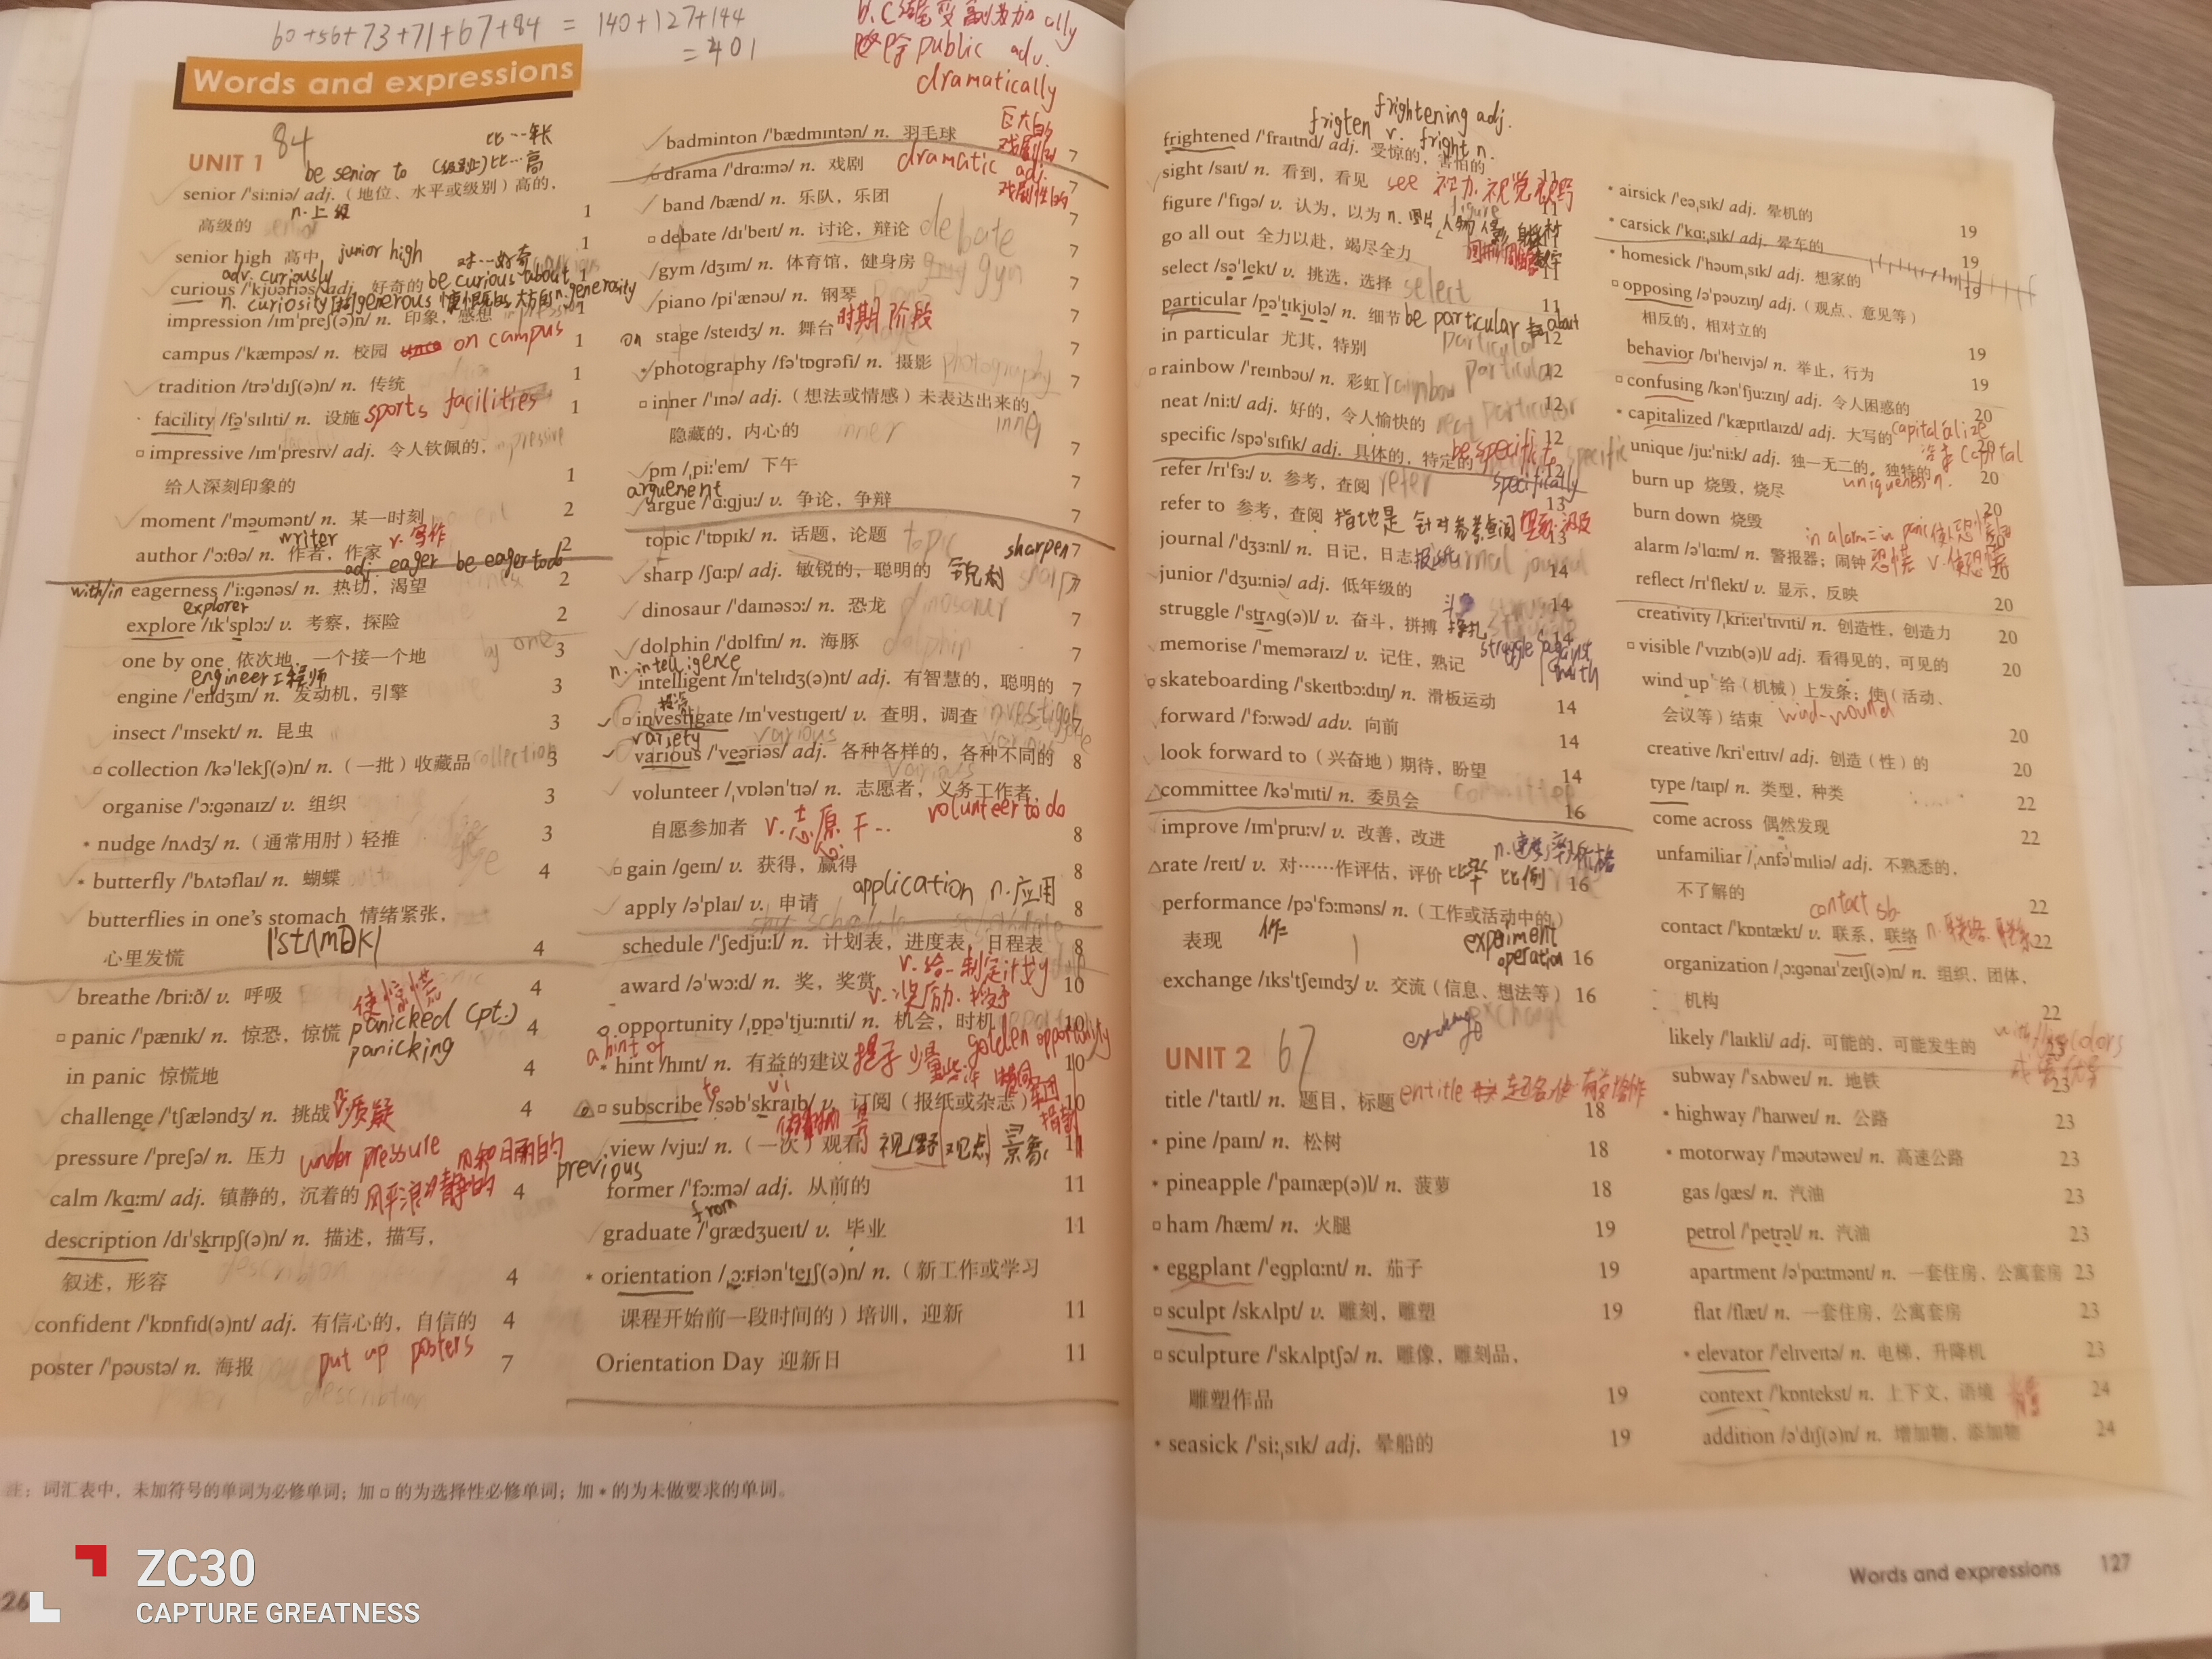 60+56+73+71+67+84 = 140+127+144
= 401
Words and expressions
dramatically
UNIT 1 84
be senior to
senior /ˈsiːniə/ adj.（地位、水平或级别）高的，
高级的 n.上级 1
senior high 高中 junior high 1
adv. curiously
curious /ˈkjʊəriəs/ adj. 好奇的 be curious about 1
n. curiosity generous generosity
impression /ɪmˈpreʃ(ə)n/ n. 印象，感想 1
campus /ˈkæmpəs/ n. 校园 on campus 1
tradition /trəˈdɪʃ(ə)n/ n. 传统 1
facility /fəˈsɪlɪti/ n. 设施 sports facilities 1
□ impressive /ɪmˈpresɪv/ adj. 令人钦佩的，
给人深刻印象的 1
moment /ˈməʊmənt/ n. 某一时刻 2
writer
author /ˈɔːθə/ n. 作者，作家 v. 写作 2
adj. eager be eager to do
with/in eagerness /ˈiːɡənəs/ n. 热切，渴望 2
explorer
explore /ɪkˈsplɔː/ v. 考察，探险 2
one by one 依次地，一个接一个地 3
engineer 工程师
engine /ˈendʒɪn/ n. 发动机，引擎 3
insect /ˈɪnsekt/ n. 昆虫 3
□ collection /kəˈlekʃ(ə)n/ n.（一批）收藏品 3
organise /ˈɔːɡənaɪz/ v. 组织 3
• nudge /nʌdʒ/ n.（通常用肘）轻推 3
• butterfly /ˈbʌtəflaɪ/ n. 蝴蝶 4
butterflies in one's stomach 情绪紧张，
心里发慌 4
breathe /briːð/ v. 呼吸 4
使惊慌
□ panic /ˈpænɪk/ n. 惊恐，惊慌 panicked (pt.) 4
panicking
in panic 惊慌地 4
challenge /ˈtʃæləndʒ/ n. 挑战 v.质疑 4
pressure /ˈpreʃə/ n. 压力 under pressure
calm /kɑːm/ adj. 镇静的，沉着的 风平浪静的 4
description /dɪˈskrɪpʃ(ə)n/ n. 描述，描写，
叙述，形容 4
confident /ˈkɒnfɪd(ə)nt/ adj. 有信心的，自信的 4
poster /ˈpəʊstə/ n. 海报 put up posters 7
badminton /ˈbædmɪntən/ n. 羽毛球 7
□ drama /ˈdrɑːmə/ n. 戏剧 dramatic adj. 7
band /bænd/ n. 乐队，乐团 7
□ debate /dɪˈbeɪt/ n. 讨论，辩论 debate 7
gym /dʒɪm/ n. 体育馆，健身房 7
piano /piˈænəʊ/ n. 钢琴 7
on stage /steɪdʒ/ n. 舞台 时期 阶段 7
• photography /fəˈtɒɡrəfi/ n. 摄影 photography 7
□ inner /ˈɪnə/ adj.（想法或情感）未表达出来的，
隐藏的，内心的 inner 7
pm /ˌpiːˈem/ 下午 7
arguement
argue /ˈɑːɡjuː/ v. 争论，争辩 7
topic /ˈtɒpɪk/ n. 话题，论题 topic 7
sharpen
sharp /ʃɑːp/ adj. 敏锐的，聪明的 锐利 7
dinosaur /ˈdaɪnəsɔː/ n. 恐龙 dinosaur 7
dolphin /ˈdɒlfɪn/ n. 海豚 dolphin 7
n. intelligence
intelligent /ɪnˈtelɪdʒ(ə)nt/ adj. 有智慧的，聪明的 7
□ investigate /ɪnˈvestɪɡeɪt/ v. 查明，调查 7
variety
various /ˈveəriəs/ adj. 各种各样的，各种不同的 8
volunteer /ˌvɒlənˈtɪə/ n. 志愿者，义务工作者，
自愿参加者 volunteer to do 8
□ gain /ɡeɪn/ v. 获得，赢得 8
apply /əˈplaɪ/ v. 申请 application n.应用 8
schedule /ˈʃedjuːl/ n. 计划表，进度表，日程表 8
award /əˈwɔːd/ n. 奖，奖赏 10
□ opportunity /ˌɒpəˈtjuːnɪti/ n. 机会，时机 10
a hint of golden opportunity
• hint /hɪnt/ n. 有益的建议 10
□ subscribe /səbˈskraɪb/ v. 订阅（报纸或杂志） 10
view /vjuː/ n.（一次）观看 视野 观点 景象 11
previous
former /ˈfɔːmə/ adj. 从前的 11
from
graduate /ˈɡrædʒueɪt/ v. 毕业 11
• orientation /ˌɔːriənˈteɪʃ(ə)n/ n.（新工作或学习
课程开始前一段时间的）培训，迎新 11
Orientation Day 迎新日 11
注：词汇表中，未加符号的单词为必修单词；加 □ 的为选择性必修单词；加 • 的为未做要求的单词。
ZC30
CAPTURE GREATNESS
26
frigten v. frightening adj.
fright n.
frightened /ˈfraɪtnd/ adj. 受惊的，害怕的 11
sight /saɪt/ n. 看到，看见 see 视力 视觉 视野
figure /ˈfɪɡə/ v. 认为，以为 11
go all out 全力以赴，竭尽全力 11
select /səˈlekt/ v. 挑选，选择 select 11
particular /pəˈtɪkjʊlə/ n. 细节 be particular about 11
in particular 尤其，特别 12
□ rainbow /ˈreɪnbəʊ/ n. 彩虹 rainbow 12
neat /niːt/ adj. 好的，令人愉快的 12
specific /spəˈsɪfɪk/ adj. 具体的，特定的 be specific 12
specifically
refer /rɪˈfɜː/ v. 参考，查阅 refer 12
refer to 参考，查阅 13
journal /ˈdʒɜːnl/ n. 日记，日志 13
junior /ˈdʒuːniə/ adj. 低年级的 14
struggle /ˈstrʌɡ(ə)l/ v. 奋斗，拼搏 14
struggle against
with
memorise /ˈmeməraɪz/ v. 记住，熟记 14
□ skateboarding /ˈskeɪtbɔːdɪŋ/ n. 滑板运动 14
forward /ˈfɔːwəd/ adv. 向前 14
look forward to（兴奋地）期待，盼望 14
committee /kəˈmɪti/ n. 委员会 16
improve /ɪmˈpruːv/ v. 改善，改进
rate /reɪt/ v. 对……作评估，评价 比率 比例 16
performance /pəˈfɔːməns/ n.（工作或活动中的）
表现 16
experiment
operation
exchange /ɪksˈtʃeɪndʒ/ v. 交流（信息、想法等） 16
exchange
UNIT 2 67
title /ˈtaɪtl/ n. 题目，标题 entitle 18
• pine /paɪn/ n. 松树 18
• pineapple /ˈpaɪnæp(ə)l/ n. 菠萝 18
□ ham /hæm/ n. 火腿 19
• eggplant /ˈeɡplɑːnt/ n. 茄子 19
□ sculpt /skʌlpt/ v. 雕刻，雕塑 19
□ sculpture /ˈskʌlptʃə/ n. 雕像，雕刻品，
雕塑作品 19
• seasick /ˈsiːˌsɪk/ adj. 晕船的 19
• airsick /ˈeəˌsɪk/ adj. 晕机的 19
• carsick /ˈkɑːˌsɪk/ adj. 晕车的 19
• homesick /ˈhəʊmˌsɪk/ adj. 想家的 19
□ opposing /əˈpəʊzɪŋ/ adj.（观点、意见等）
相反的，相对立的 19
behavior /bɪˈheɪvjə/ n. 举止，行为 19
□ confusing /kənˈfjuːzɪŋ/ adj. 令人困惑的 20
• capitalized /ˈkæpɪtlaɪzd/ adj. 大写的 20
unique /juːˈniːk/ adj. 独一无二的，独特的 20
uniqueness n.
burn up 烧毁，烧尽 20
burn down 烧毁 20
in alarm = in panic
alarm /əˈlɑːm/ n. 警报器；闹钟 恐慌 v. 使恐慌 20
reflect /rɪˈflekt/ v. 显示，反映 20
creativity /ˌkriːeɪˈtɪvɪti/ n. 创造性，创造力 20
□ visible /ˈvɪzɪb(ə)l/ adj. 看得见的，可见的 20
wind up 给（机械）上发条；使（活动、
会议等）结束 wind-wound 20
creative /kriˈeɪtɪv/ adj. 创造（性）的 20
type /taɪp/ n. 类型，种类 22
come across 偶然发现 22
unfamiliar /ˌʌnfəˈmɪliə/ adj. 不熟悉的，
不了解的 22
contact sb.
contact /ˈkɒntækt/ v. 联系，联络 22
organization /ˌɔːɡənaɪˈzeɪʃ(ə)n/ n. 组织，团体，
机构 22
likely /ˈlaɪkli/ adj. 可能的，可能发生的 23
subway /ˈsʌbweɪ/ n. 地铁 23
• highway /ˈhaɪweɪ/ n. 公路 23
• motorway /ˈməʊtəweɪ/ n. 高速公路 23
gas /ɡæs/ n. 汽油 23
petrol /ˈpetrəl/ n. 汽油 23
apartment /əˈpɑːtmənt/ n. 一套住房，公寓套房 23
flat /flæt/ n. 一套住房，公寓套房 23
• elevator /ˈelɪveɪtə/ n. 电梯，升降机 23
context /ˈkɒntekst/ n. 上下文，语境 24
addition /əˈdɪʃ(ə)n/ n. 增加物，添加物 24
Words and expressions 127